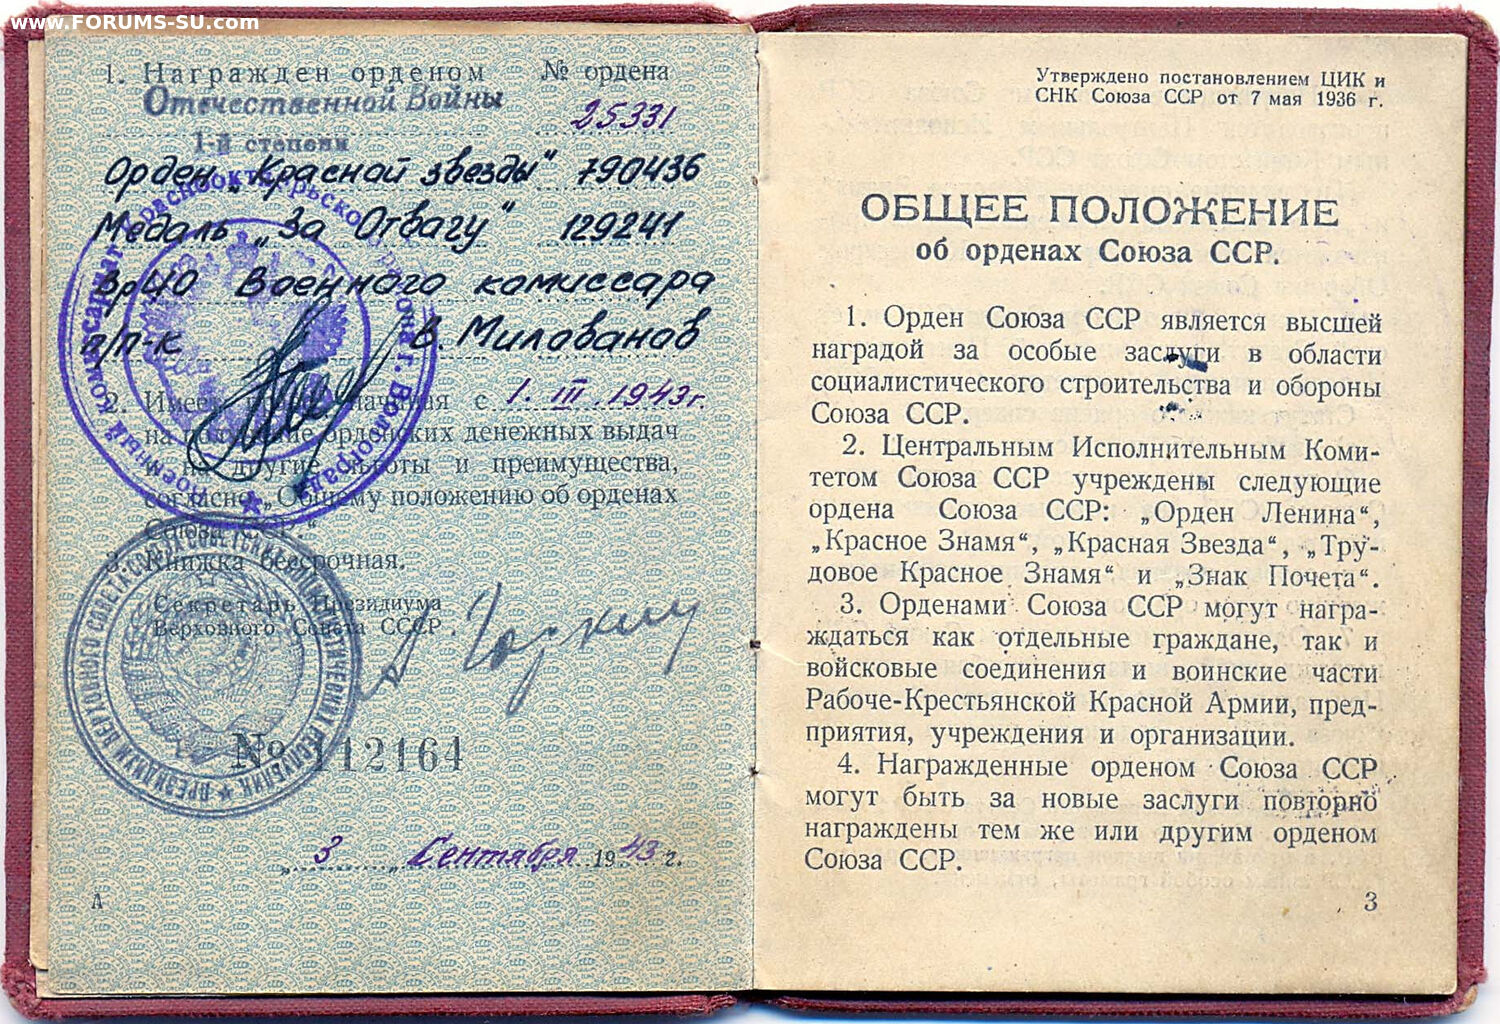 www.FORUMS-SU.com
1. Награжден орденом № ордена
Отечественной Войны 25331
1-й степени
Орден „Красной звезды" 790436
Медаль „За Отвагу" 129241
ВрИО Военного комиссара
п/п-к В. Милованов
2. Имеет начиная с 1. III. 1943г.
на получение орденских денежных выдач
и другие льготы и преимущества,
согласно „Общему положению об орденах
Союза ССР.“
3. Книжка бессрочная.
Секретарь Президиума
Верховного Совета СССР.
А Горкин
№ 112164
„ 3 „ Сентября 1943 г.
А
Военный комиссариат Краснооктябрьского района г. Волгограда
Утверждено постановлением ЦИК и
СНК Союза ССР от 7 мая 1936 г.
ОБЩЕЕ ПОЛОЖЕНИЕ
об орденах Союза ССР.
1. Орден Союза ССР является высшей
наградой за особые заслуги в области
социалистического строительства и обороны
Союза ССР.
2. Центральным Исполнительным Коми-
тетом Союза ССР учреждены следующие
ордена Союза ССР: „Орден Ленина“,
„Красное Знамя“, „Красная Звезда“, „Тру-
довое Красное Знамя“ и „Знак Почета“.
3. Орденами Союза ССР могут награ-
ждаться как отдельные граждане, так и
войсковые соединения и воинские части
Рабоче-Крестьянской Красной Армии, пред-
приятия, учреждения и организации.
4. Награжденные орденом Союза ССР
могут быть за новые заслуги повторно
награждены тем же или другим орденом
Союза ССР.
3